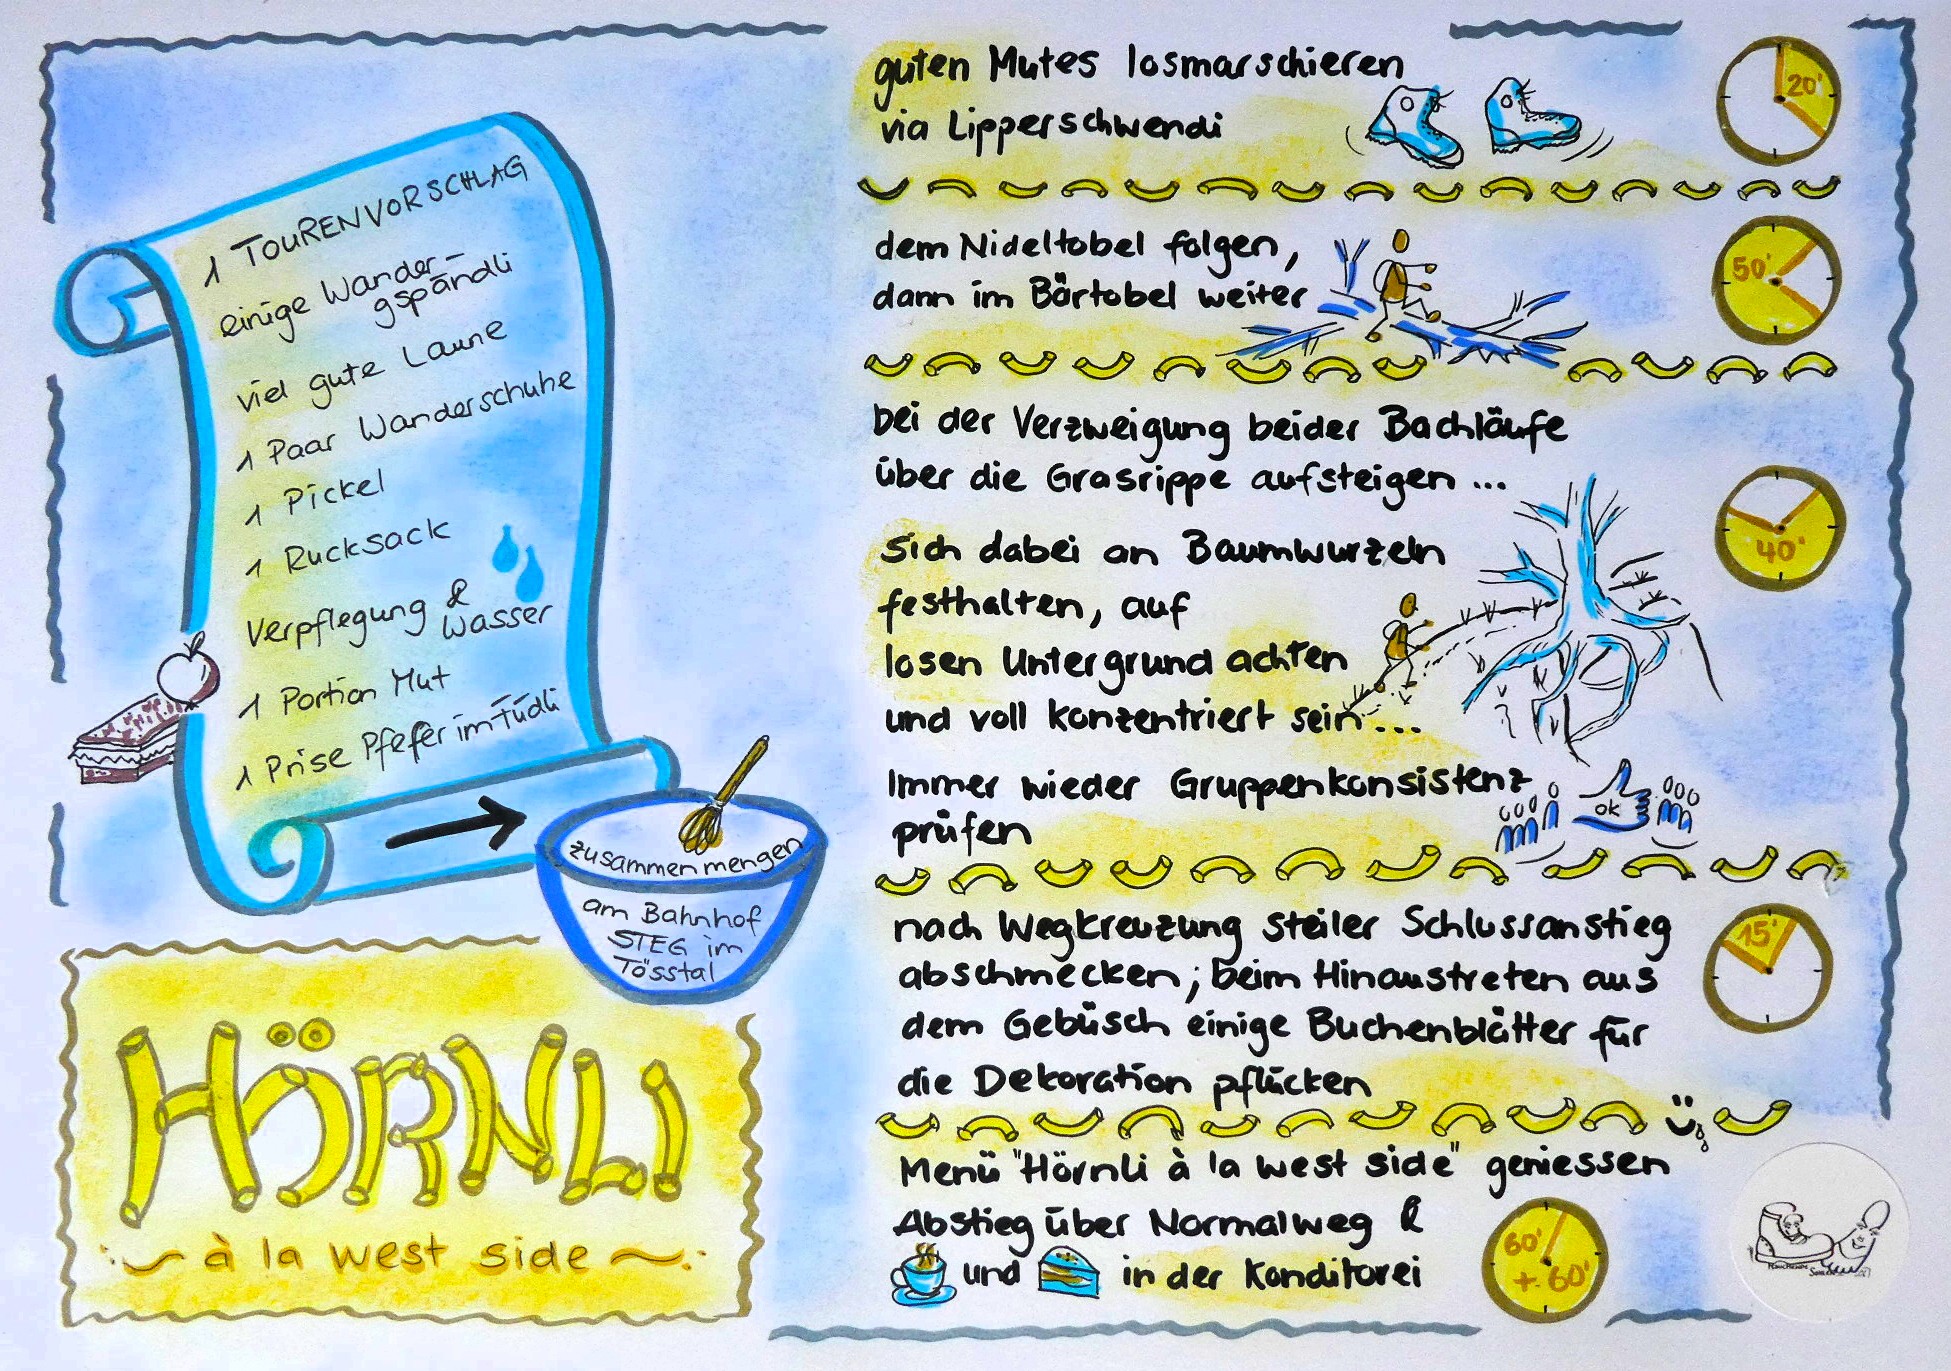 1 TOURENVORSCHLAG
einige Wander-
gspändli
viel gute Laune
1 Paar Wanderschuhe
1 Pickel
1 Rucksack
Verpflegung &
Wasser
1 Portion Mut
1 Prise Pfeffer im Füdli
zusammenmengen
am Bahnhof
STEG im
Tösstal
HÖRNLI
~ à la west side ~
guten Mutes losmarschieren
via Lipperschwendi
20'
dem Nideltobel folgen,
dann im Bärtobel weiter
50'
bei der Verzweigung beider Bachläufe
über die Grasrippe aufsteigen ...
40'
Sich dabei an Baumwurzeln
festhalten, auf
losen Untergrund achten
und voll konzentriert sein ...
Immer wieder Gruppenkonsistenz
prüfen
OK
nach Wegkreuzung steiler Schlussanstieg
abschmecken; beim Hinaustreten aus
dem Gebüsch einige Buchenblätter für
die Dekoration pflücken
15'
Menü "Hörnli à la west side" geniessen
Abstieg über Normalweg &
und in der Konditorei
60'
+ 60'